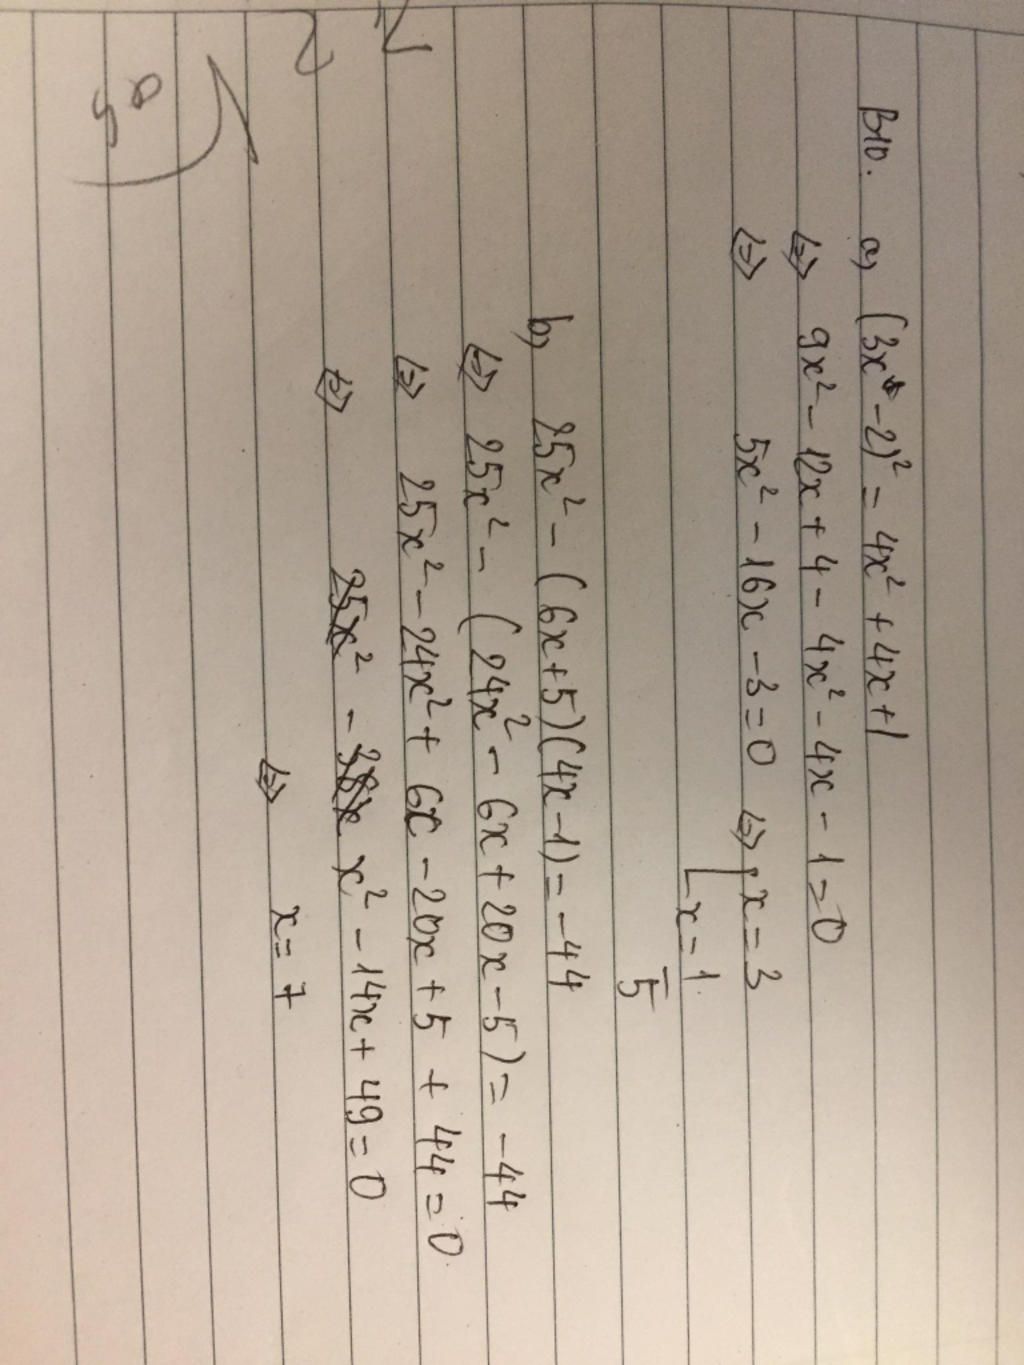 B10. a, (3x - 2)² = 4x² + 4x + 1
⇔ 9x² - 12x + 4 - 4x² - 4x - 1 = 0
⇔ 5x² - 16x - 3 = 0 ⇔ [ x = 3
x = 1/5
b, 25x² - (6x + 5)(4x - 1) = -44
⇔ 25x² - (24x² - 6x + 20x - 5) = -44
⇔ 25x² - 24x² + 6x - 20x + 5 + 44 = 0
⇔ x² - 14x + 49 = 0
⇔ x = 7